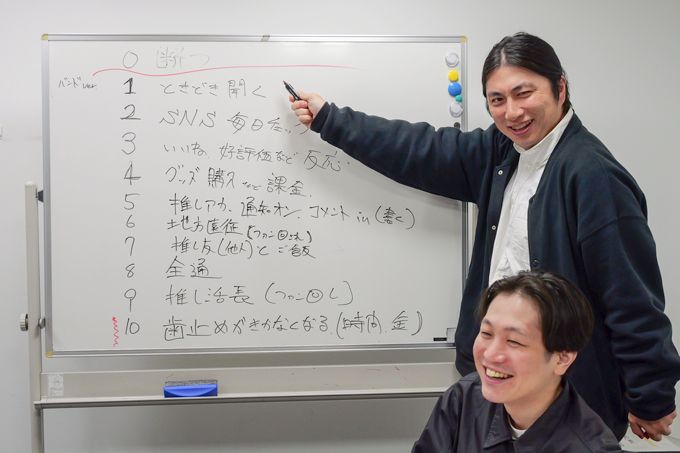 0 断つ
バンドver
1 ときどき開く
2 SNS 毎日
3 いいね、好評価など 反応
4 グッズ購入 など 課金
5 推しアカ、通知オン、コメント in (書く)
6 地方直征 (ファン回され)
7 推し友(他人)と ご飯
8 全通
9 推し活長 (ファン回し)
10 歯止めがきかなくなる、(時間、金)